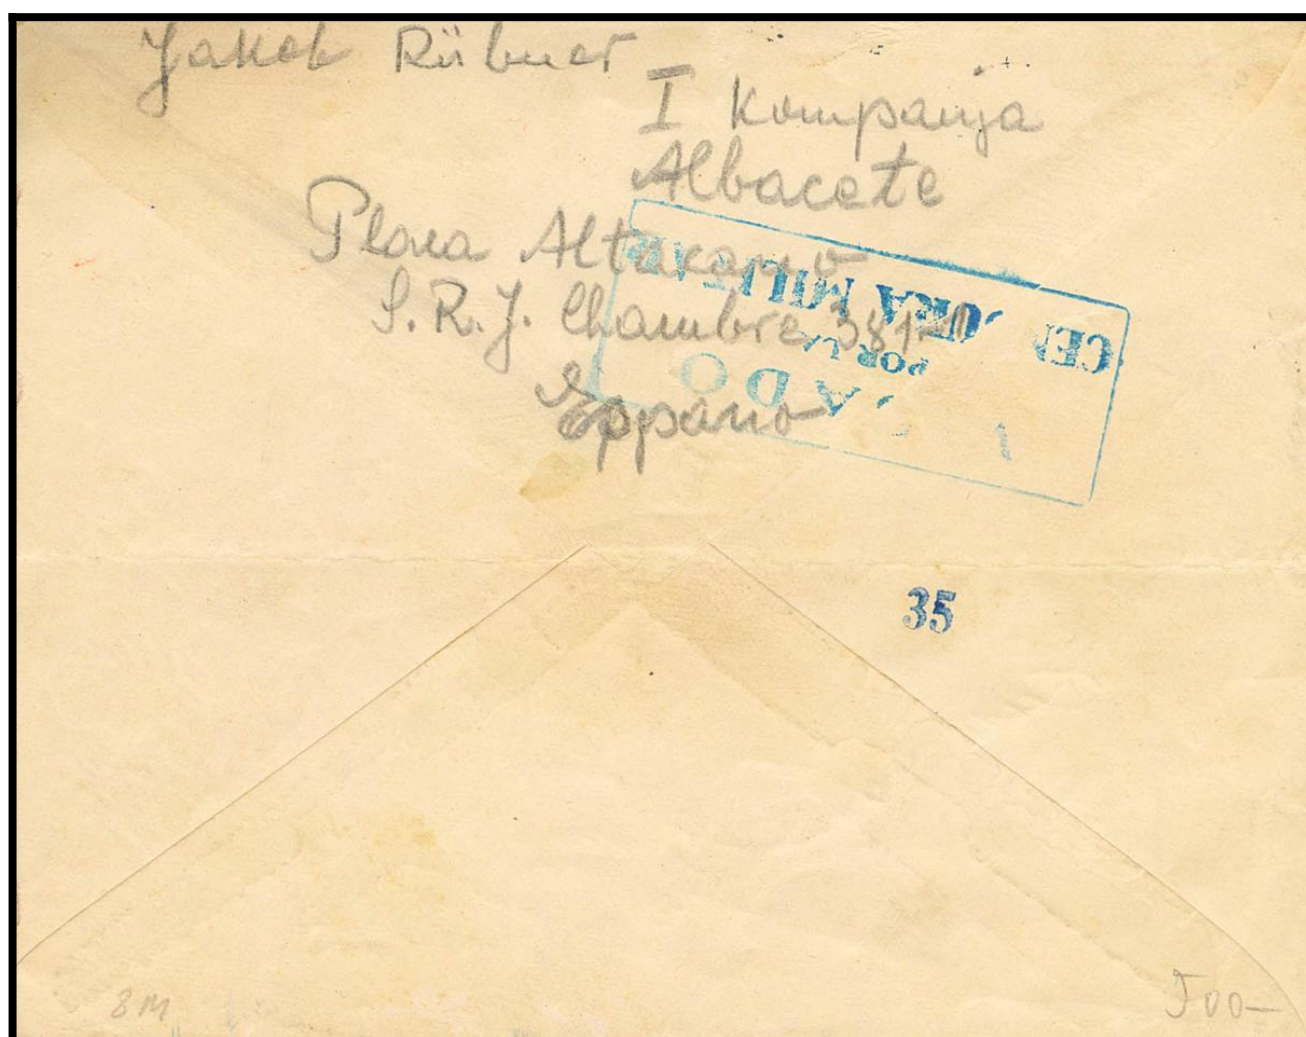 Jakob Rübner
I Kompanja
Albacete
Plaza Altaxano
S.R.J. Chambre 381-
Eppano
CENSURA MILITAR
POR LA
ADO
35
8M
500-